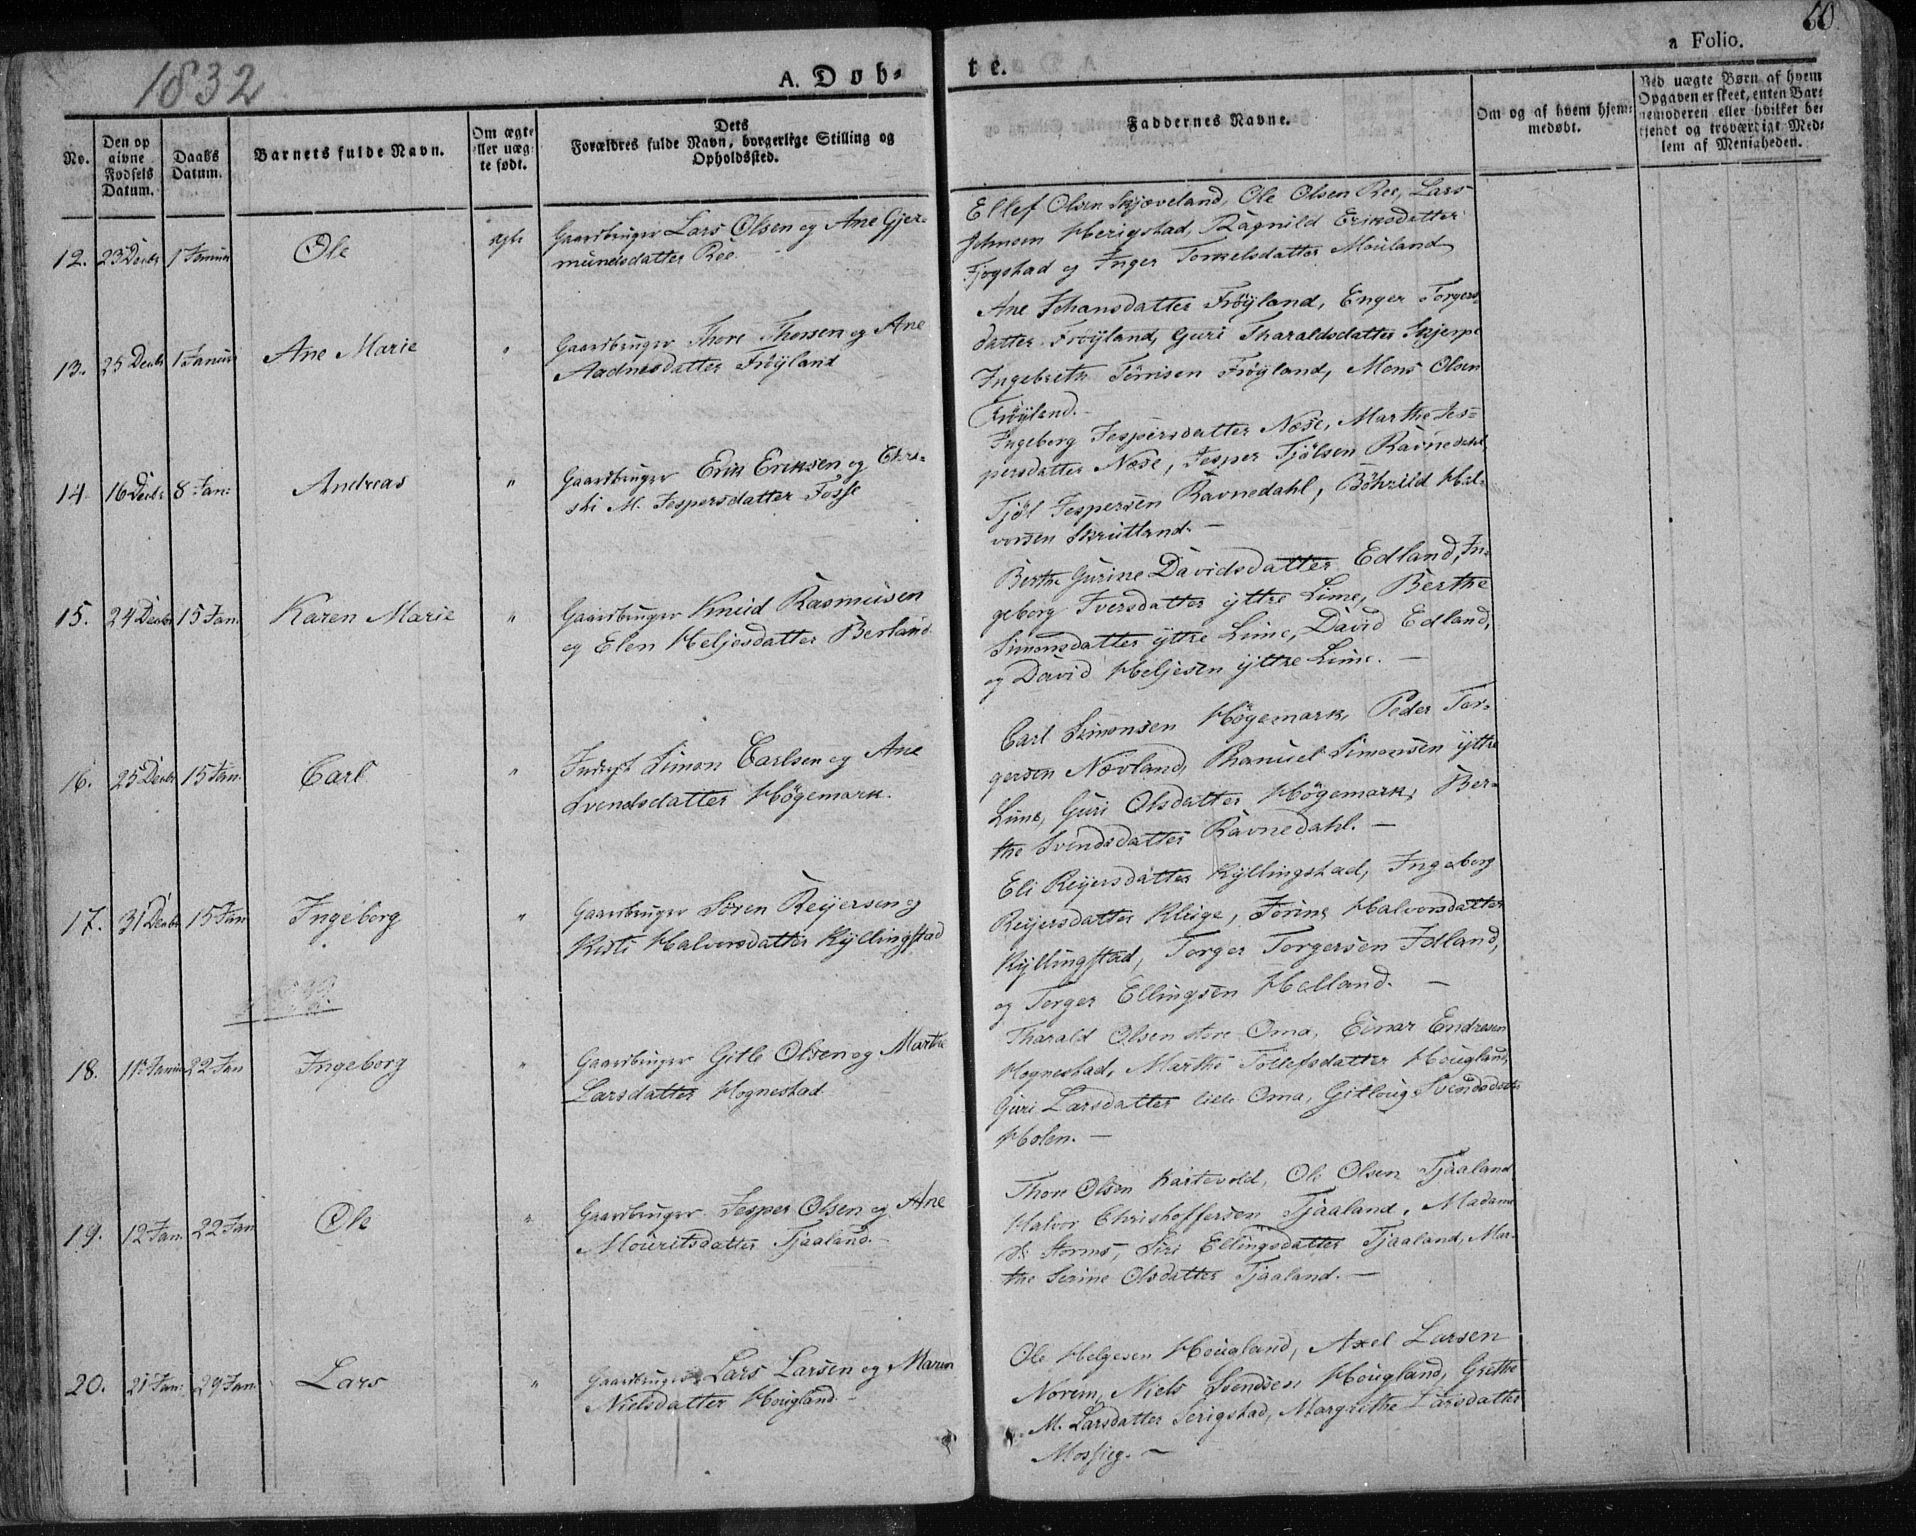 1832
A. Døb-
te.
a Folio.
No.
Den op
givne
Fødsels
Datum.
Daabs
Datum.
Barnets fulde Navn.
Om ægte
eller uæg-
te født.
Dets
Forældres fulde Navn, borgerlige Stilling og
Opholdssted.
Faddernes Navne.
Om og af hvem hjem-
medøbt.
Ved uægte Børn af hvem
Opgaven er skeet, enten Bar-
nemoderen eller hvilket be-
kjendt og troværdigt Med-
lem af Menigheden.
12. 23 Decbr 1 Januar Ole ægte
Gaardbruger Lars Olsen og Ane Gjer-
mundsdatter Ree.
Ellef Olsen Skjæveland, Ole Olsen Ree, Lars
Johnsen Herigstad, Ragnild Eriksdatter
Fjogstad og Inger Torkelsdatter Mauland
13. 25 Decbr 1 Januar Ane Marie "
Gaardbruger Thore Thorsen og Ane
Aadnesdatter Frøyland
Ane Johansdatter Frøyland, Enger Torgers-
datter Frøyland, Guri Tharaldsdatter Skjerpe
Ingebreth Tørrisen Frøyland, Mons Olsen
Frøyland.-
14 16 Decbr 8 Jan: Andreas "
Gaardbruger Erik Eriksen og Chri-
sti M. Jespersdatter Fosse
Ingeborg Jespersdatter Næse, Marthe Jes-
persdatter Næse, Jesper Tjølsen Ravnedahl,
Tjøl Jespersen Ravnedahl, Børild Hal-
vorsen Skrutland.-
15. 24 Decbr 15 Jan. Karen Marie "
Gaardbruger Knud Rasmusen
og Elen Heljesdatter Berland
Berthe Gurine Davidsdatter Edland, In-
geborg Iversdatter ÿttre Lime, Berthe
Simonsdatter ÿttre Lime, David Edland,
og David Heljesen ÿttre Lime. -
16. 25 Decbr 15 Jan. Carl "
Inderst Simon Carlsen og Ane
Svendsdatter Høgemark.
Carl Simonsen Høgemark, Peder Tor-
gersen Nævland, Thanuel Simonsen ÿttre
Lime, Guri Olsdatter Høgemark, Ber-
the Svendsdatter Ravnedahl. -
17. 31 Decbr 15 Jan Ingeborg "
Gaardbruger Søren Reijersen og
Kisti Halvorsdatter Kÿllingstad
Eli Reijersdatter Kÿllingstad, Ingeborg
Reijersdatter Kluge, Jorine Halvorsdatter
Kÿllingstad, Torger Torgersen Idland,
og Torger Ellingsen Helland. -
18. 11 Januar 22 Jan Ingeborg "
Gaardbruger Gitle Olsen og Marthe
Larsdatter Hognestad
Tharald Olsen store Oma, Einar Endresen
Hognestad, Marthe Tollefsdatter Hougland,
Guri Larsdatter lille Oma, Gitloug Svendsdatter
Holen. -
19. 12 Jan. 22 Jan Ole "
Gaardbruger Jesper Olsen og Ane
Mouritsdatter Tjaaland.-
Thore Olsen Kartevold, Ole Olsen Tjaaland
Halvor Christoffersen Tjaaland, Madame
Storms, Siri Ellingsdatter Tjaaland, Mar-
the Serine Olsdatter Tjaaland. -
20. 21 Jan. 29 Jan. Lars "
Gaardbruger Lars Larsen og Maren
Nielsdatter Hougland. -
Ole Helgesen Hougland, Axel Larsen
Norem, Niels Svendsen Hougland, Grethe
M. Larsdatter Serigstad, Margrethe Larsdatter
Mossieg. -